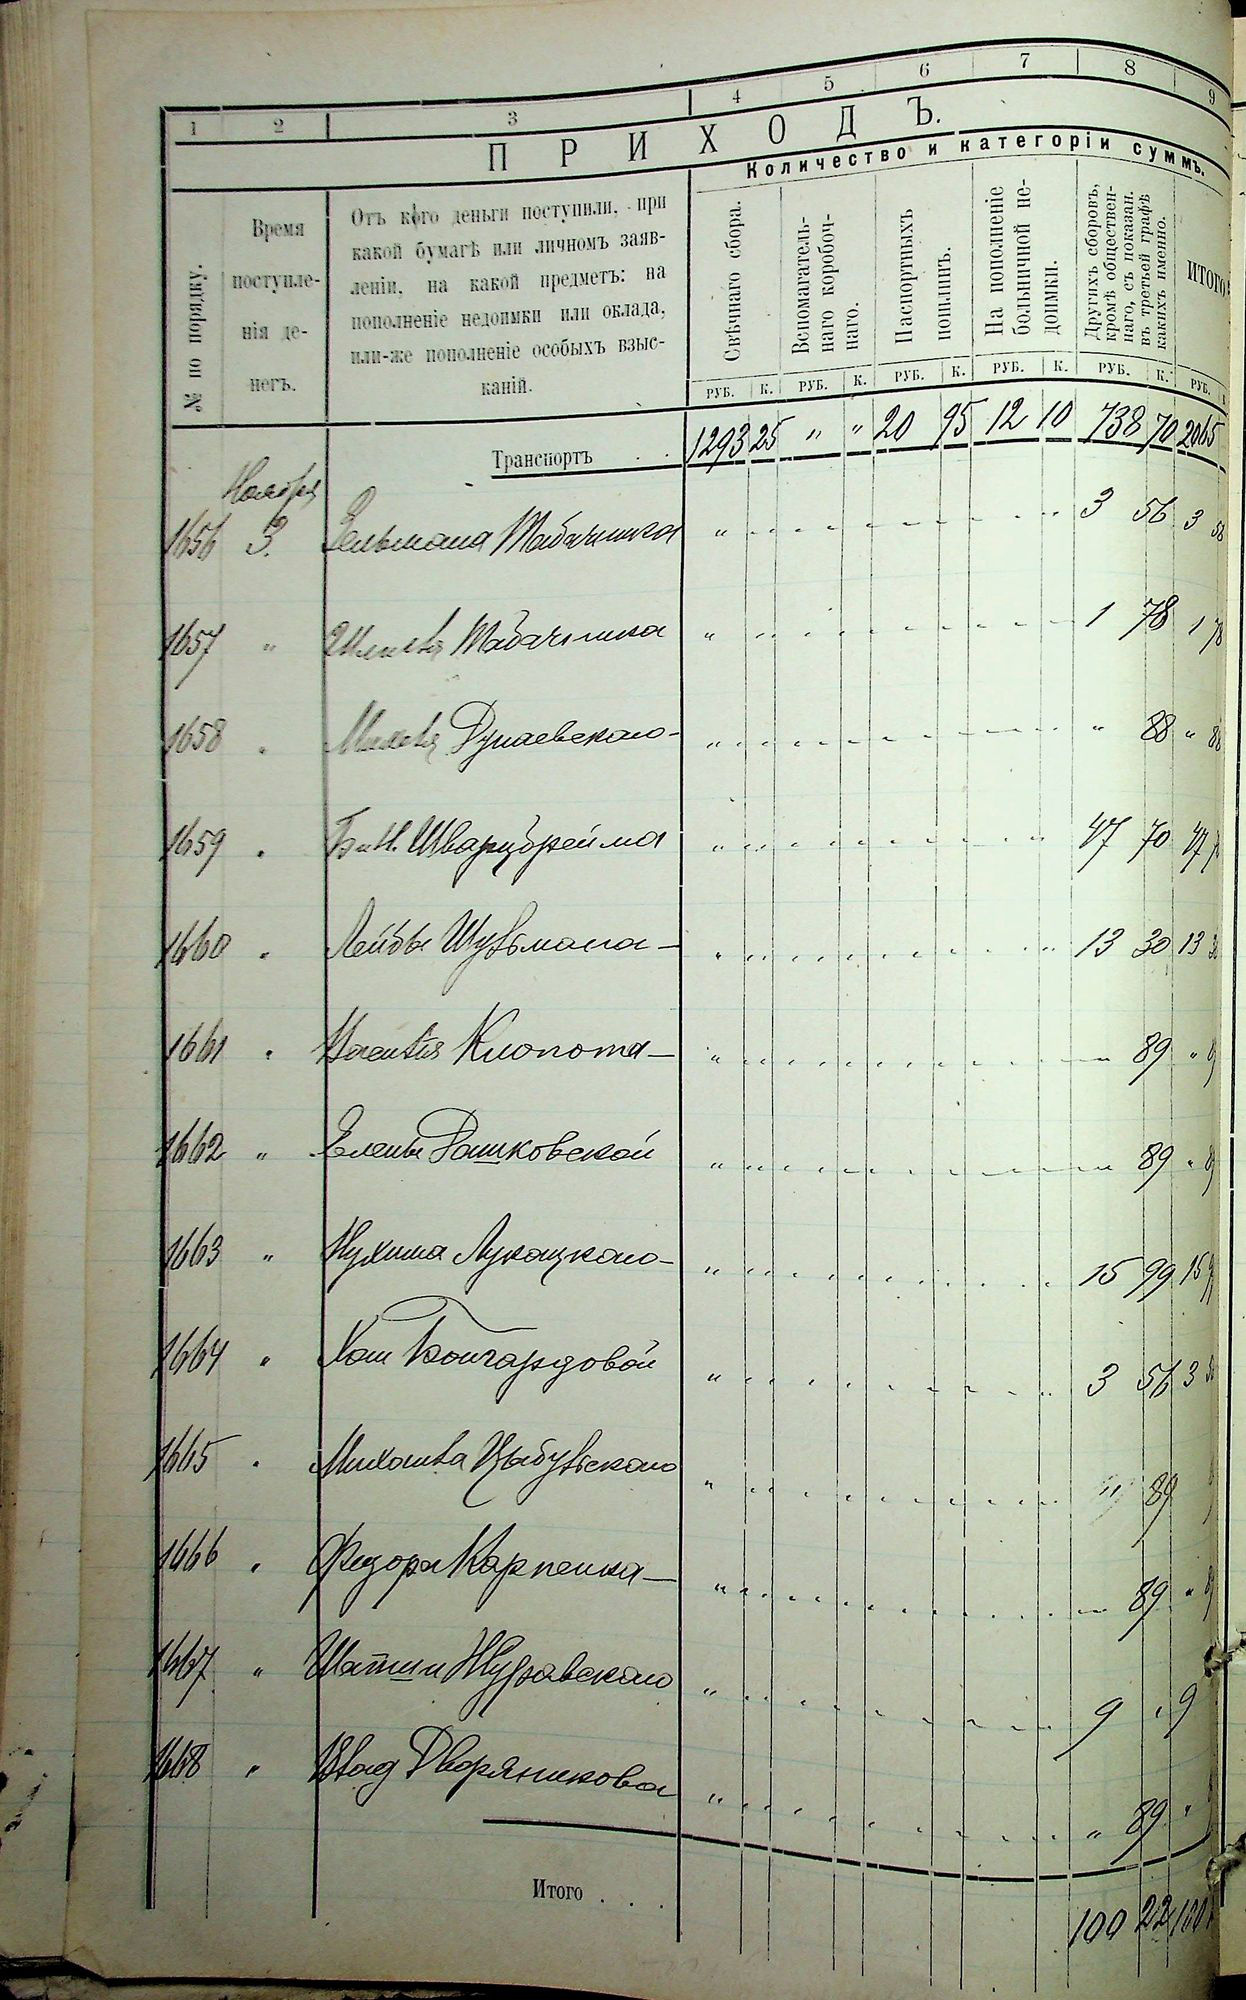 1 2 3 4 5 6 7 8 9
ПРИХОДЪ.
Количество и категоріи суммъ.
№ по порядку.
Время
поступле-
нія де-
негъ.
Отъ кого деньги поступили, при
какой бумагѣ или личномъ заяв-
леніи, на какой предметъ: на
пополненіе недоимки или оклада,
или-же пополненіе особыхъ взыс-
каній.
Свѣчнаго сбора.
Вспомагатель-
наго коробоч-
наго.
Паспортныхъ
пошлинъ.
На пополненіе
больничной не-
доимки.
Другихъ сборовъ,
кромѣ обществен-
наго, съ показан.
въ третьей графѣ
какихъ именно.
ИТОГО
РУБ. К. РУБ. К. РУБ. К. РУБ. К. РУБ. К. РУБ.
Транспортъ . . 1293 25 " " 20 95 12 10 738 70 2065
Ноября
1656 3. Зельмана Табачника " 3 56 3 56
1657 " Табачника " 1 78 1 78
1658 " Дунаевскаго " " 88 " 88
1659 " Шварцбрейма " 47 70 47 70
1660 " Лейбы Шульмана " 13 30 13 30
1661 " Клопота " 89 " 89
1662 " Елены Рашковской " 89 " 89
1663 " Нухима Лукацкаго " 15 99 15 99
1664 " Бонгардовой " 3 56 3 56
1665 " Михаила Цыбульскаго " " 89
1666 " Федора Карпенка " 89 " 89
1667 " Журавскаго " 9 " 9
1668 " Влад Дворяникова " " 89 "
Итого . . . 100 22 100